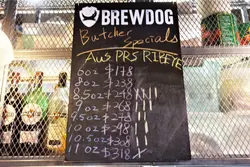 BREWDOG
Butcher
Specials
Aus PRS RIBEYE
6oz $178
8oz $238
8.5oz $248
9oz $268
9.5oz $278
10oz $298
10.5oz $308
11oz $318 X